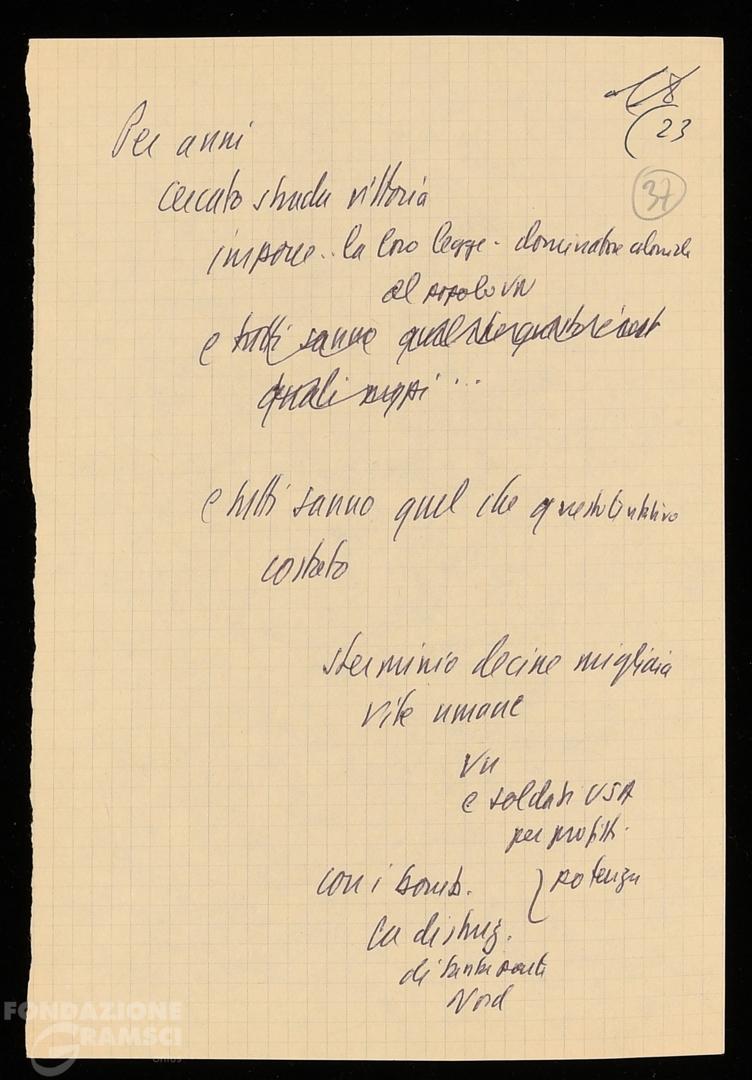 8
23
37
Per anni
cercato strada vittoria
imporre .. la loro legge - dominatore coloniale
al popolo VN
e tutti sanno quel che
quali
e tutti sanno quel che questo tentativo
costato
sterminio decine migliaia
vite umane
VN
e soldati USA
per profitti.
con i bomb. } potenza
la distruz.
di tanta parte
Nord
FONDAZIONE
GRAMSCI
onlus